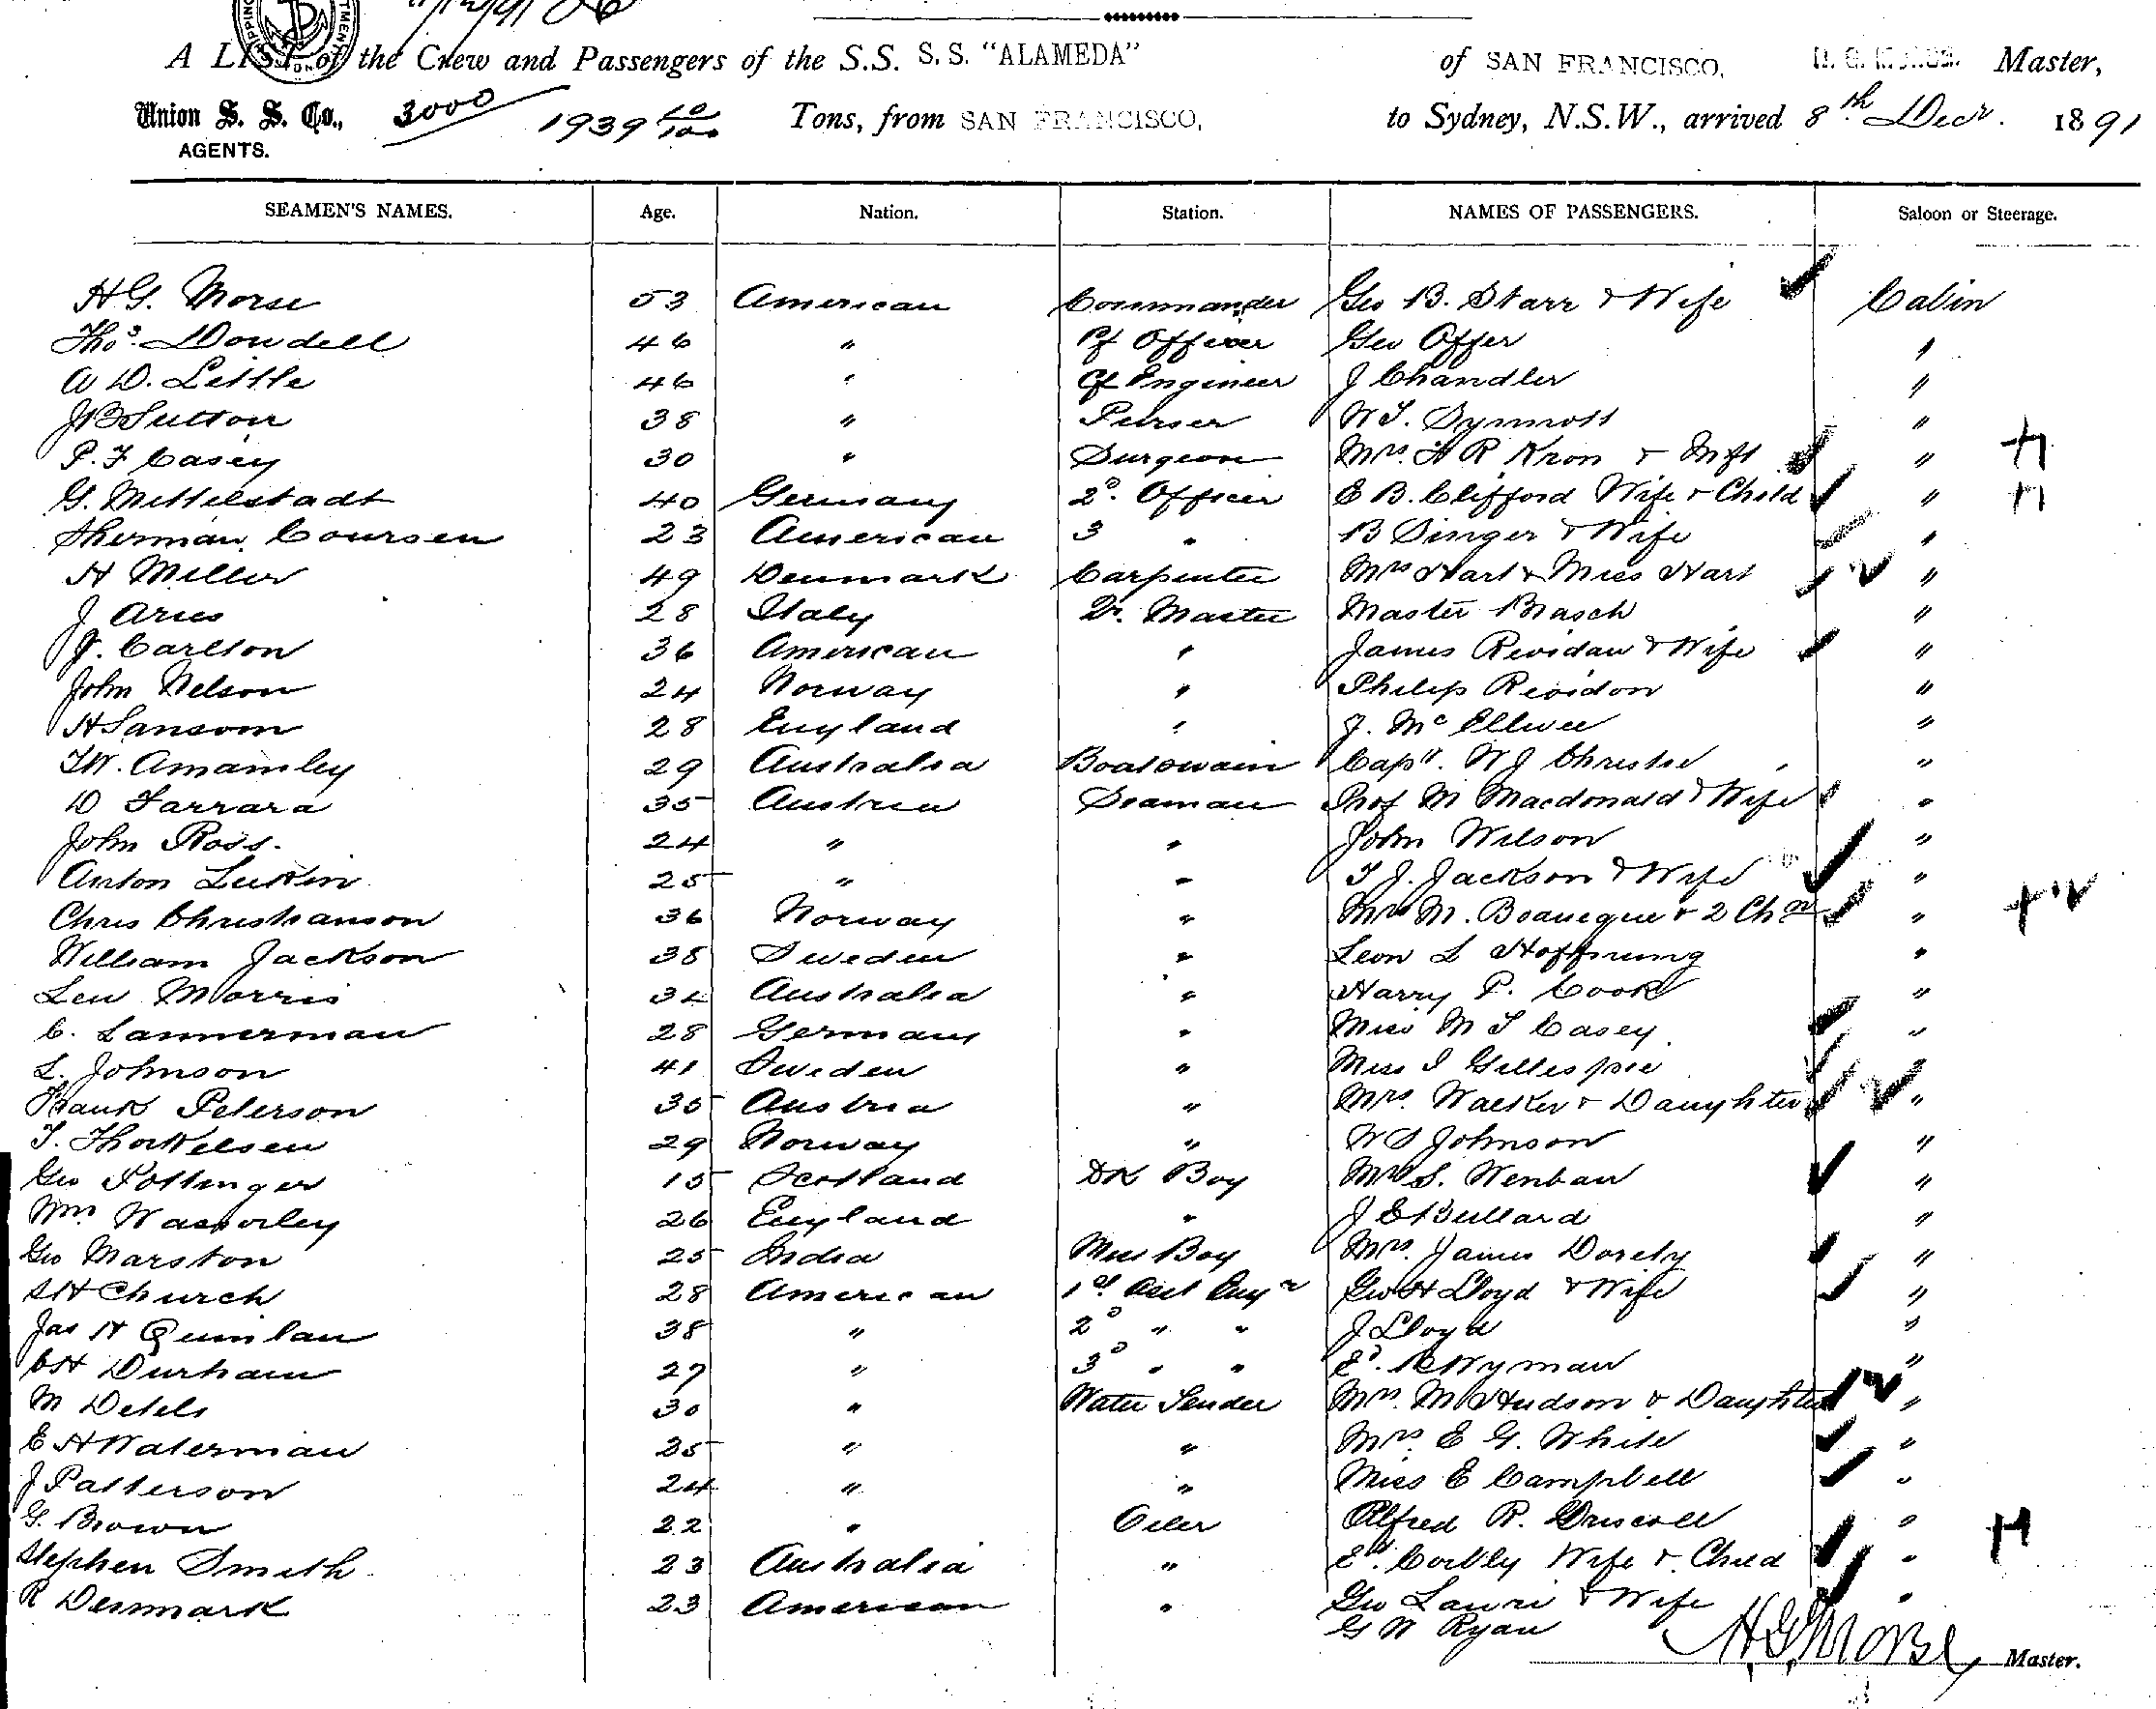 A LIST of the Crew and Passengers of the S.S. S.S. "ALAMEDA" of SAN FRANCISCO, Master,
Union S. S. Co., 3000 1939 10/100 Tons, from SAN FRANCISCO, to Sydney, N.S.W., arrived 8th Decr. 1891
AGENTS.
SEAMEN'S NAMES. Age. Nation. Station. NAMES OF PASSENGERS. Saloon or Steerage.
H.G. Morse 53 American Commander Geo B. Starr & Wife Cabin
Thos. Dowdell 46 " Cf Officer Geo Offer "
A D. Little 46 " Cf Engineer J Chandler "
J B Sutton 38 " Purser W T. Synnott "
P. F Casey 30 " Surgeon Mrs. H R Kron & "
G. Mittelstadt 40 Germany 2d. Officer E B. Clifford Wife & Child "
Sherman Coursen 23 American 3 " B Singer & Wife "
H Miller 49 Denmark Carpenter Mrs Hart & Miss Hart "
J Aries 28 Italy Qr. Master Master Brasch "
J. Carlson 36 American " James Revidan & Wife "
John Nelson 24 Norway " Philip Revidon "
H Sansom 28 England " J. McEllwee "
T.W. Amamley 29 Australia Boatswain Capt. W J Christie "
D Farrara 35 Austria Seaman Prof M Macdonald & Wife "
John Ross. 24 " " John Wilson "
Anton Lukin 25 " " T J. Jackson & Wife "
Chris Christianson 36 Norway " Mrs M. & 2 Chn "
William Jackson 38 Sweden " Leon L Hoffnung "
Leu Morris 34 Australia " Harry P. Cook "
C. Lannerman 28 Germany " Miss M T Casey "
L. Johnson 41 Sweden " Miss I Gillespie "
Frank Peterson 35 Austria " Mrs. Walker & Daughter "
T. Thorkelsen 29 Norway " W S Johnson "
Geo Pottinger 15 Scotland DK Boy Mrs S. Wenban "
Wm 26 England " J E Bullard "
Geo Marston 25 India Mess Boy Mrs. James Dorety "
S H Church 28 American 1st Asst Engr Geo H Lloyd & Wife "
Jas H Quinlan 38 " 2d " " J Lloyd "
C H Durham 27 " 3d " " Ed. Wyman "
M Detels 30 " Water Tender Mrs. M Hudson & Daughter "
E H Waterman 35 " " Mrs. E G. White "
J Patterson 24 " " Miss E Campbell "
G. Brown 22 " Oiler Alfred R. Driscoll "
Stephen Smith 23 Australia " Ed. Corbly Wife & Child "
R Denmark 23 American " Geo Lawri & Wife "
G W Ryan
H.G. Morse Master.